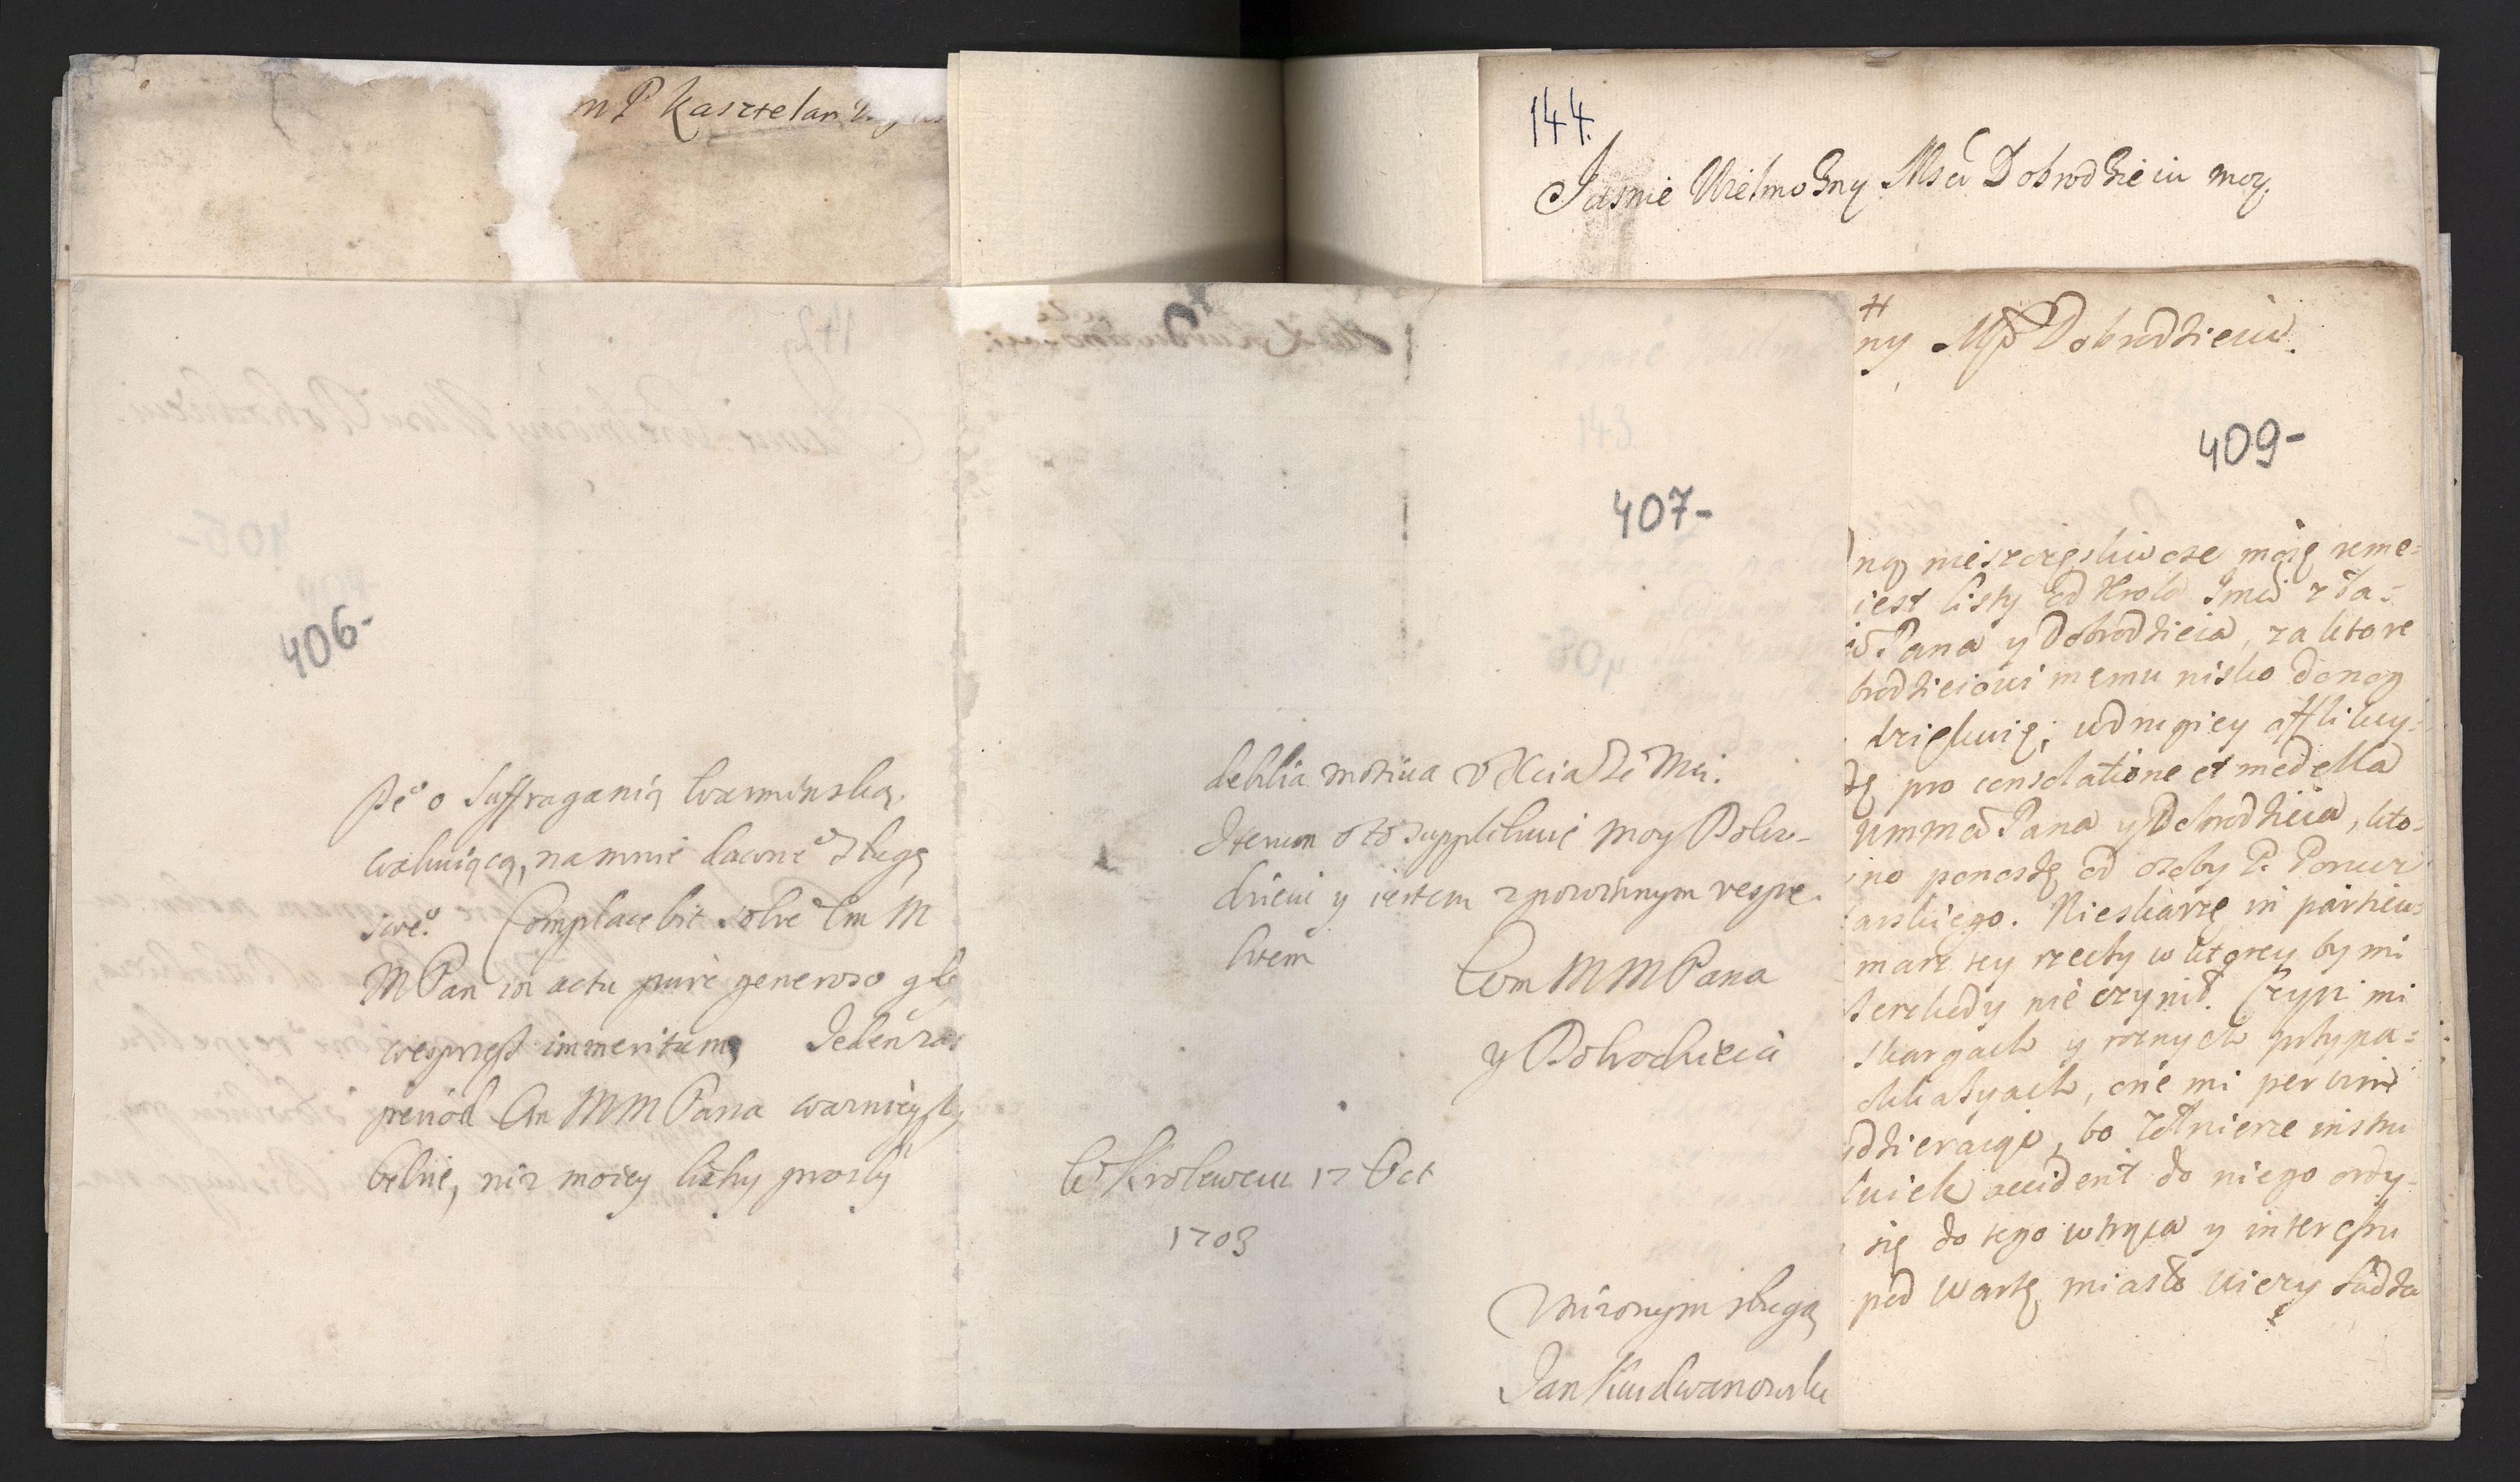 m P Kasztelan
144.
Jasnie Wielmozny Msci Dobrodzieiu moy.
406-
o Suffraganią Warminską.
wakuiącą, na mnie dawne° sługę
swe°. Complacebit sobie Em M
M Pan in actu pure generoso
wesprzeć immeritum, Jeden raz
period Em MM Pana
belne, niz moiey lichy prozby
407-
deblia motiua v Xcia Je Mci.
Iterum o to supplikuię moy Dobro-
dzieiu y iestem z powinnym respe-
ktem
Em MM Pana
y Dobrodzieia
W Krolewcu 17 Oct
1703
Unizonym sługą
Jan Kurdwanowski
ny MP Dobrodzieiu.
409-
ną nieszczęsliwosc moię reme=
iest listy od Krola Jmci z Ła=
Pana y Dobrodzieia, za ktore
brodzieiowi memu nisko do nog
dziękuię; w drugiey afflikcy=
pro consolatione et medella
Ummci Pana y Dobrodzieia, kto=
no ponoszę od osoby P. Ponur
arskiego. Nieskarzę in particu=
masz tey rzeczy w ktorey by mi
szerkody nie czynił. Czyni mi
skargach y roznych przypa=
okkazyach, one mi per vim
dzieraiąc, bo zołnierze insku
kwiek accident do niego ordy-
się do tego wtrąca y interessu
pod Wartę miasto